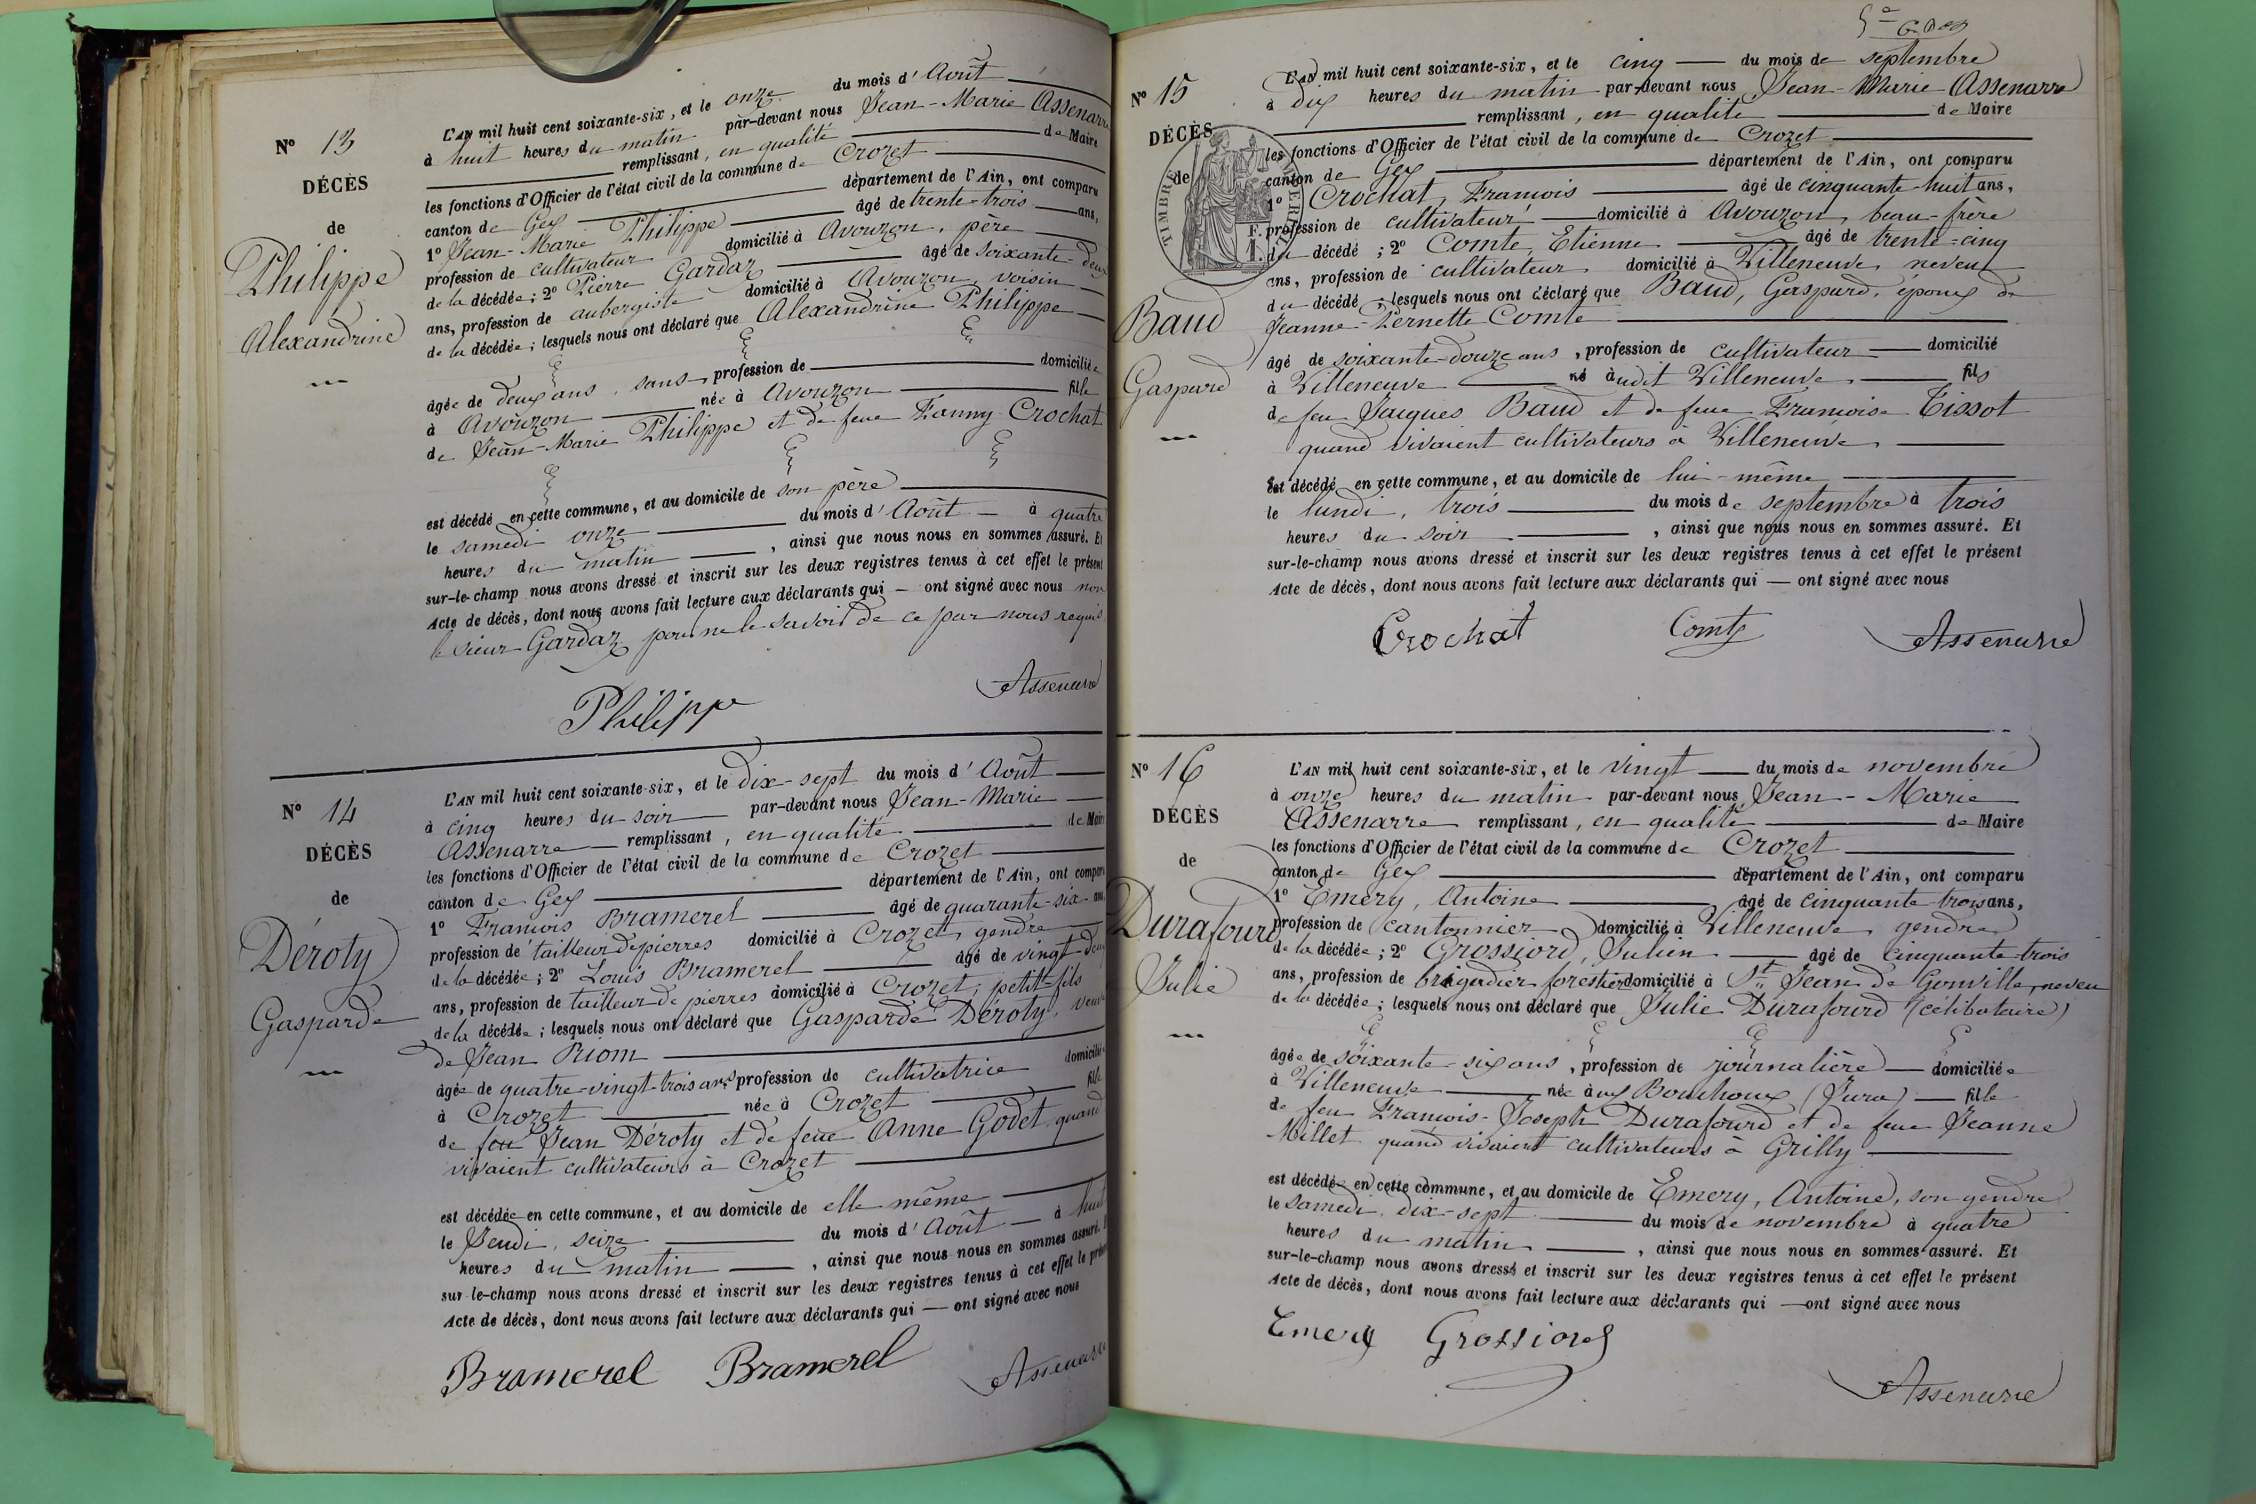 N° 13
DÉCÈS
de
Philippe
Alexandrine
L'AN mil huit cent soixante-six, et le onze du mois d'Août
à huit heures du matin par-devant nous Jean-Marie Assenarre
remplissant, en qualité de Maire
les fonctions d'Officier de l'état civil de la commune de Crozet
canton de Gex département de l'Ain, ont comparu
1° Jean-Marie Philippe âgé de trente-trois ans,
profession de cultivateur domicilié à Avouzon, père
de la décédée; 2° Pierre Gardaz âgé de soixante-deux
ans, profession de aubergiste domicilié à Avouzon, voisin
de la décédée; lesquels nous ont déclaré que Alexandrine Philippe
âgée de deux ans, sans profession de domiciliée
à Avouzon née à Avouzon fille
de Jean-Marie Philippe et de feue Fanny Crochat
est décédé en cette commune, et au domicile de son père
le samedi onze du mois d'Août à quatre
heures du matin, ainsi que nous nous en sommes assuré. Et
sur-le-champ nous avons dressé et inscrit sur les deux registres tenus à cet effet le présent
Acte de décès, dont nous avons fait lecture aux déclarants qui ont signé avec nous non
le sieur Gardaz pour ne le savoir de ce par nous requis
Philippe Assenarre
N° 14
DÉCÈS
de
Déroty
Gasparde
L'AN mil huit cent soixante-six, et le dix-sept du mois d'Août
à cinq heures du soir par-devant nous Jean-Marie
Assenarre remplissant, en qualité de Maire
les fonctions d'Officier de l'état civil de la commune de Crozet
canton de Gex département de l'Ain, ont comparu
1° François Bramerel âgé de quarante-six ans
profession de tailleur de pierres domicilié à Crozet, gendre
de la décédée; 2° Louis Bramerel âgé de vingt-deux
ans, profession de tailleur de pierres domicilié à Crozet, petit-fils
de la décédée; lesquels nous ont déclaré que Gasparde Déroty, veuve
de Jean Riom
âgée de quatre-vingt-trois ans, profession de cultivatrice domiciliée
à Crozet née à Crozet fille
de feu Jean Déroty et de feue Anne Godet quand
vivaient cultivateurs à Crozet
est décédée en cette commune, et au domicile de elle même
le Jeudi, seize du mois d'Août à huit
heures du matin, ainsi que nous nous en sommes assuré. Et
sur-le-champ nous avons dressé et inscrit sur les deux registres tenus à cet effet le présent
Acte de décès, dont nous avons fait lecture aux déclarants qui ont signé avec nous
Bramerel Bramerel Assenarre
N° 15
DÉCÈS
de
Baud
Gaspard
TIMBRE IMPERIAL
L'AN mil huit cent soixante-six, et le cinq du mois de septembre
à dix heures du matin par-devant nous Jean-Marie Assenarre
remplissant, en qualité de Maire
les fonctions d'Officier de l'état civil de la commune de Crozet
canton de Gex département de l'Ain, ont comparu
1° Crochat, François âgé de cinquante-huit ans,
profession de cultivateur domicilié à Avouzon, beau-frère
du décédé; 2° Comte, Etienne âgé de trente-cinq
ans, profession de cultivateur domicilié à Villeneuve, neveu
du décédé; lesquels nous ont déclaré que Baud, Gaspard, époux de
Jeanne-Pernette Comte
âgé de soixante-douze ans, profession de cultivateur domicilié
à Villeneuve né àudit Villeneuve fils
de feu Jacques Baud et de feue Françoise Tissot
quand vivaient cultivateurs à Villeneuve
est décédé en cette commune, et au domicile de lui-même
le lundi, trois du mois de septembre à trois
heures du soir, ainsi que nous nous en sommes assuré. Et
sur-le-champ nous avons dressé et inscrit sur les deux registres tenus à cet effet le présent
Acte de décès, dont nous avons fait lecture aux déclarants qui ont signé avec nous
Crochat Comte Assenarre
N° 16
DÉCÈS
de
Durafourd
Julie
L'AN mil huit cent soixante-six, et le vingt du mois de novembre
à onze heures du matin par-devant nous Jean-Marie
Assenarre remplissant, en qualité de Maire
les fonctions d'Officier de l'état civil de la commune de Crozet
canton de Gex département de l'Ain, ont comparu
1° Emery, Antoine âgé de cinquante-trois ans,
profession de cantonnier domicilié à Villeneuve, gendre
de la décédée; 2° Grossiord, Julien âgé de cinquante-trois
ans, profession de brigadier forestier domicilié à St Jean de Gonville, neveu
de la décédée; lesquels nous ont déclaré que Julie Durafourd (célibataire)
âgée de soixante-six ans, profession de journalière domiciliée
à Villeneuve née aux Bouchoux (Jura) fille
de feu François-Joseph Durafourd et de feue Jeanne
Millet quand vivaient cultivateurs à Grilly
est décédée en cette commune, et au domicile de Emery, Antoine, son gendre
le samedi, dix-sept du mois de novembre à quatre
heures du matin, ainsi que nous nous en sommes assuré. Et
sur-le-champ nous avons dressé et inscrit sur les deux registres tenus à cet effet le présent
Acte de décès, dont nous avons fait lecture aux déclarants qui ont signé avec nous
Emery Grossiord
Assenarre